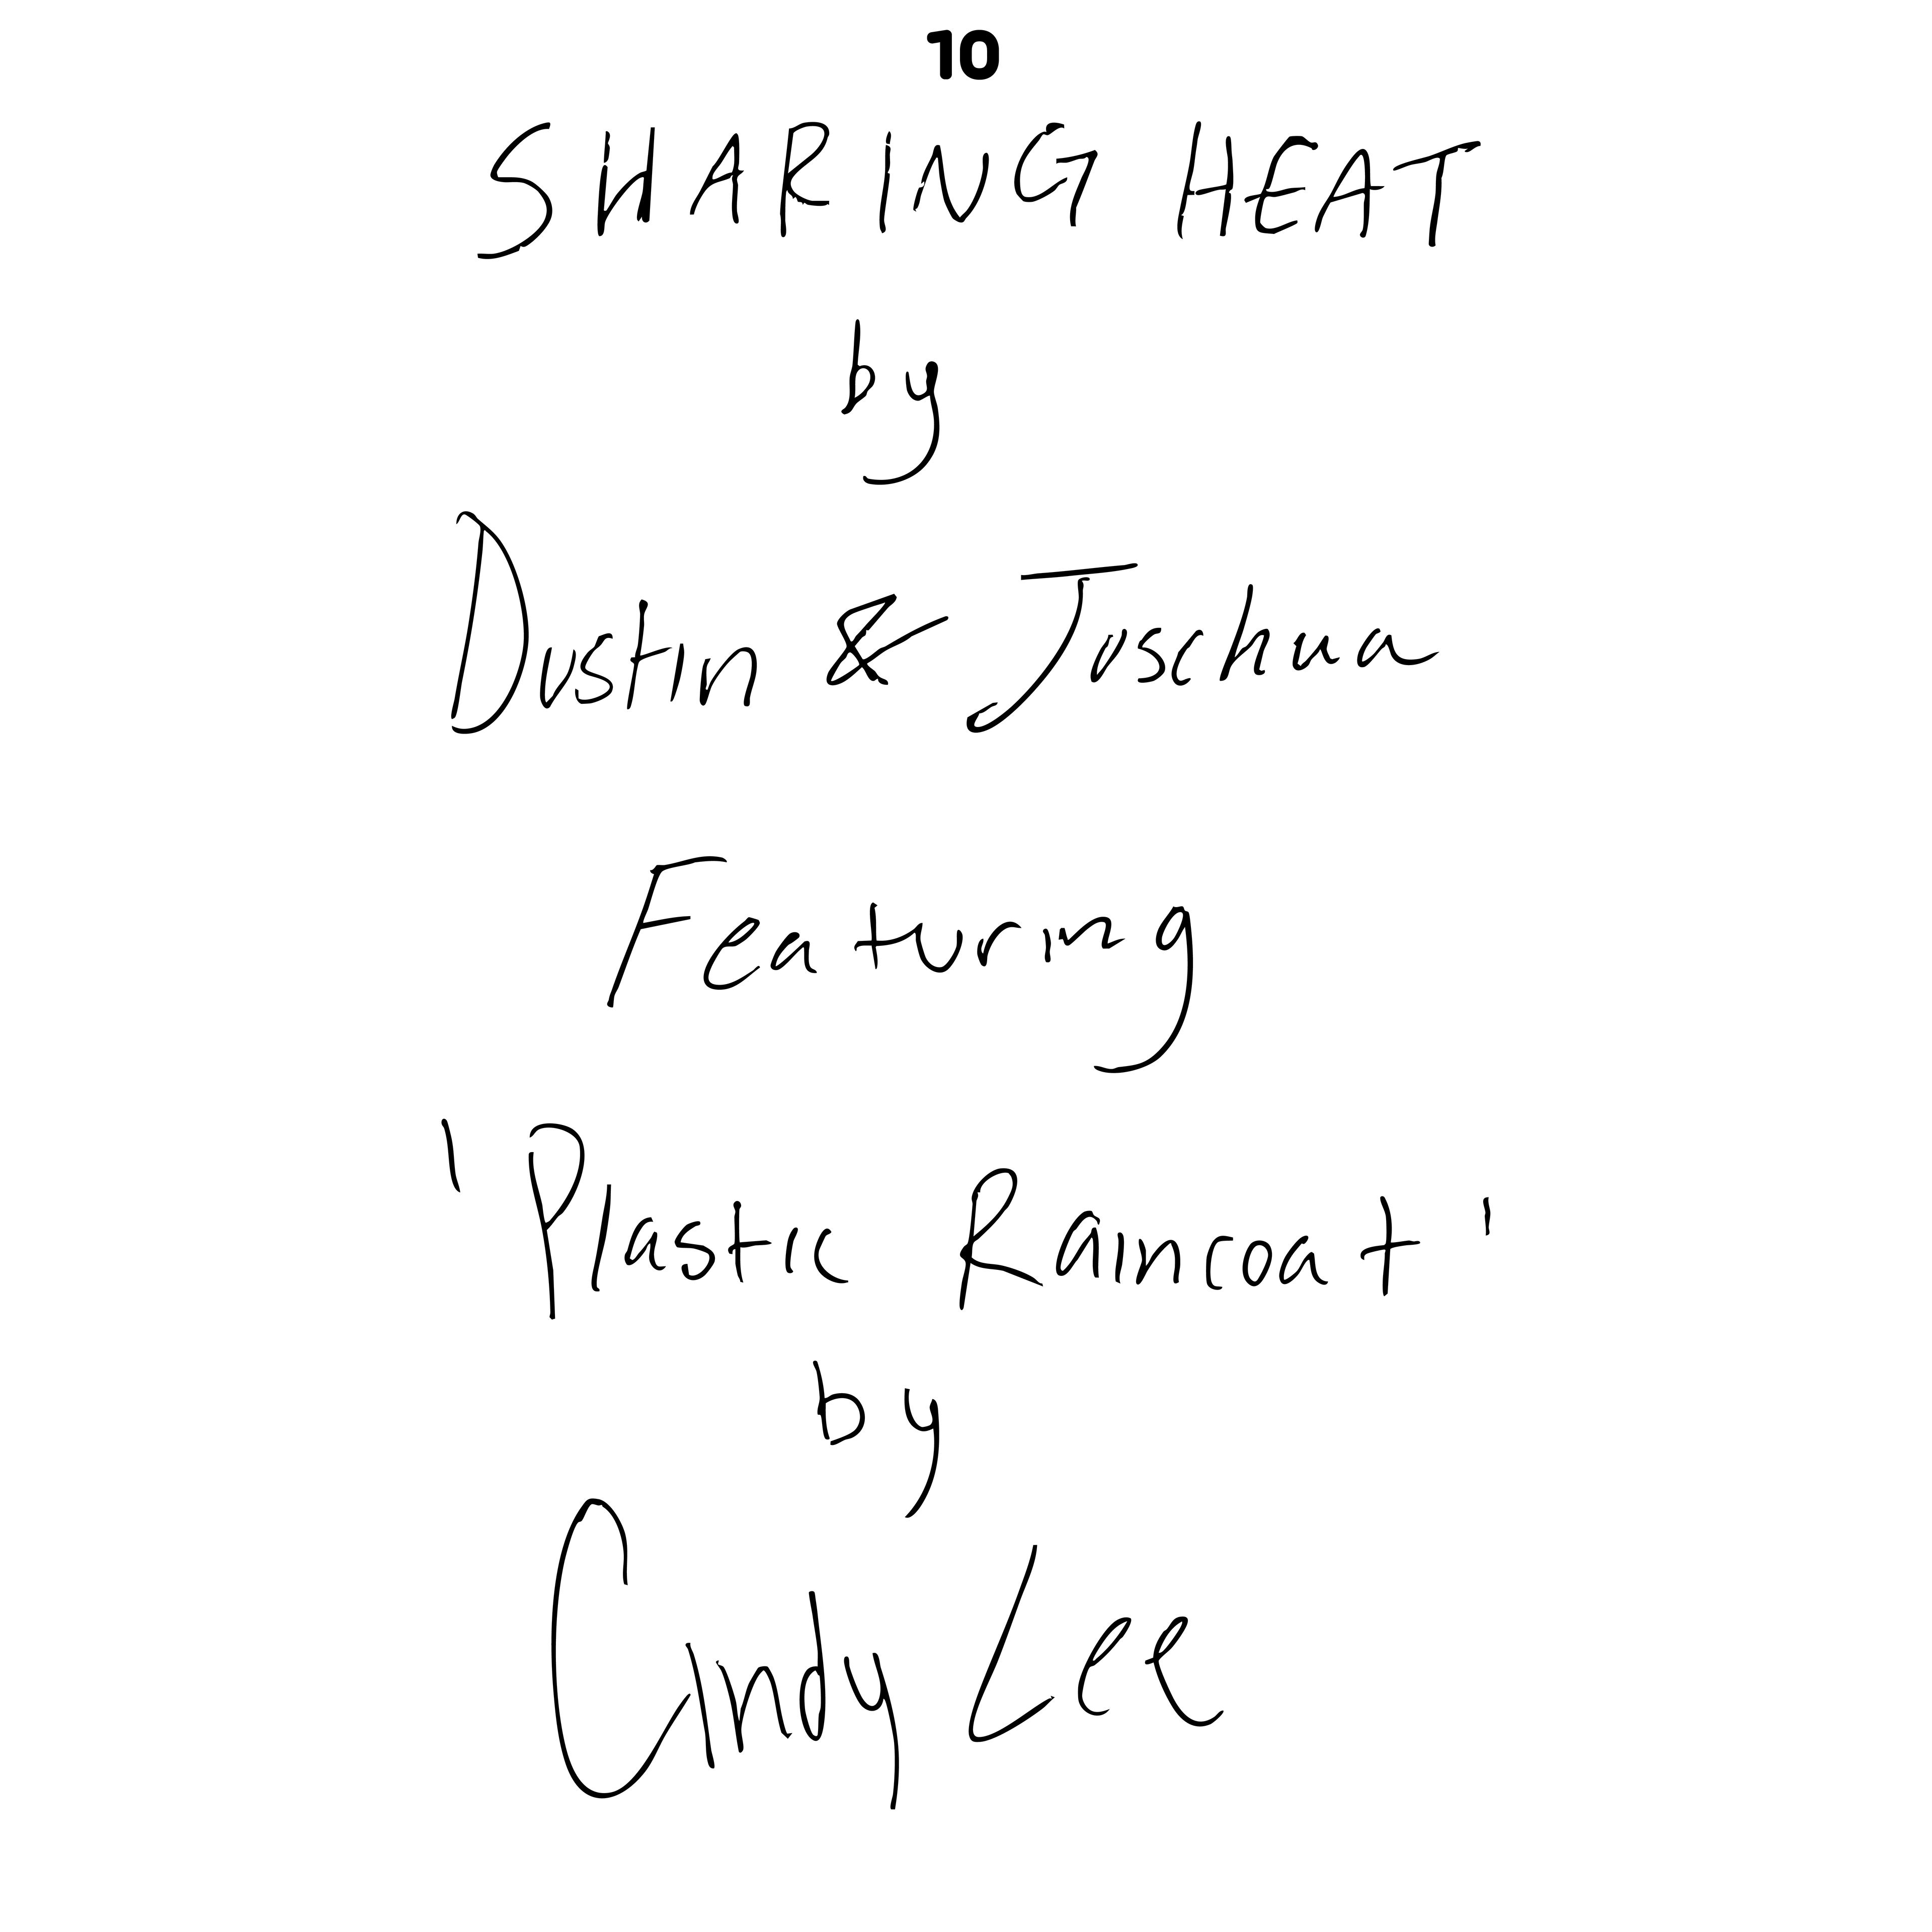 10
SHARING HEAT
by
Dustin & Joshua
Featuring
"Plastic Raincoat"
by
Cindy Lee